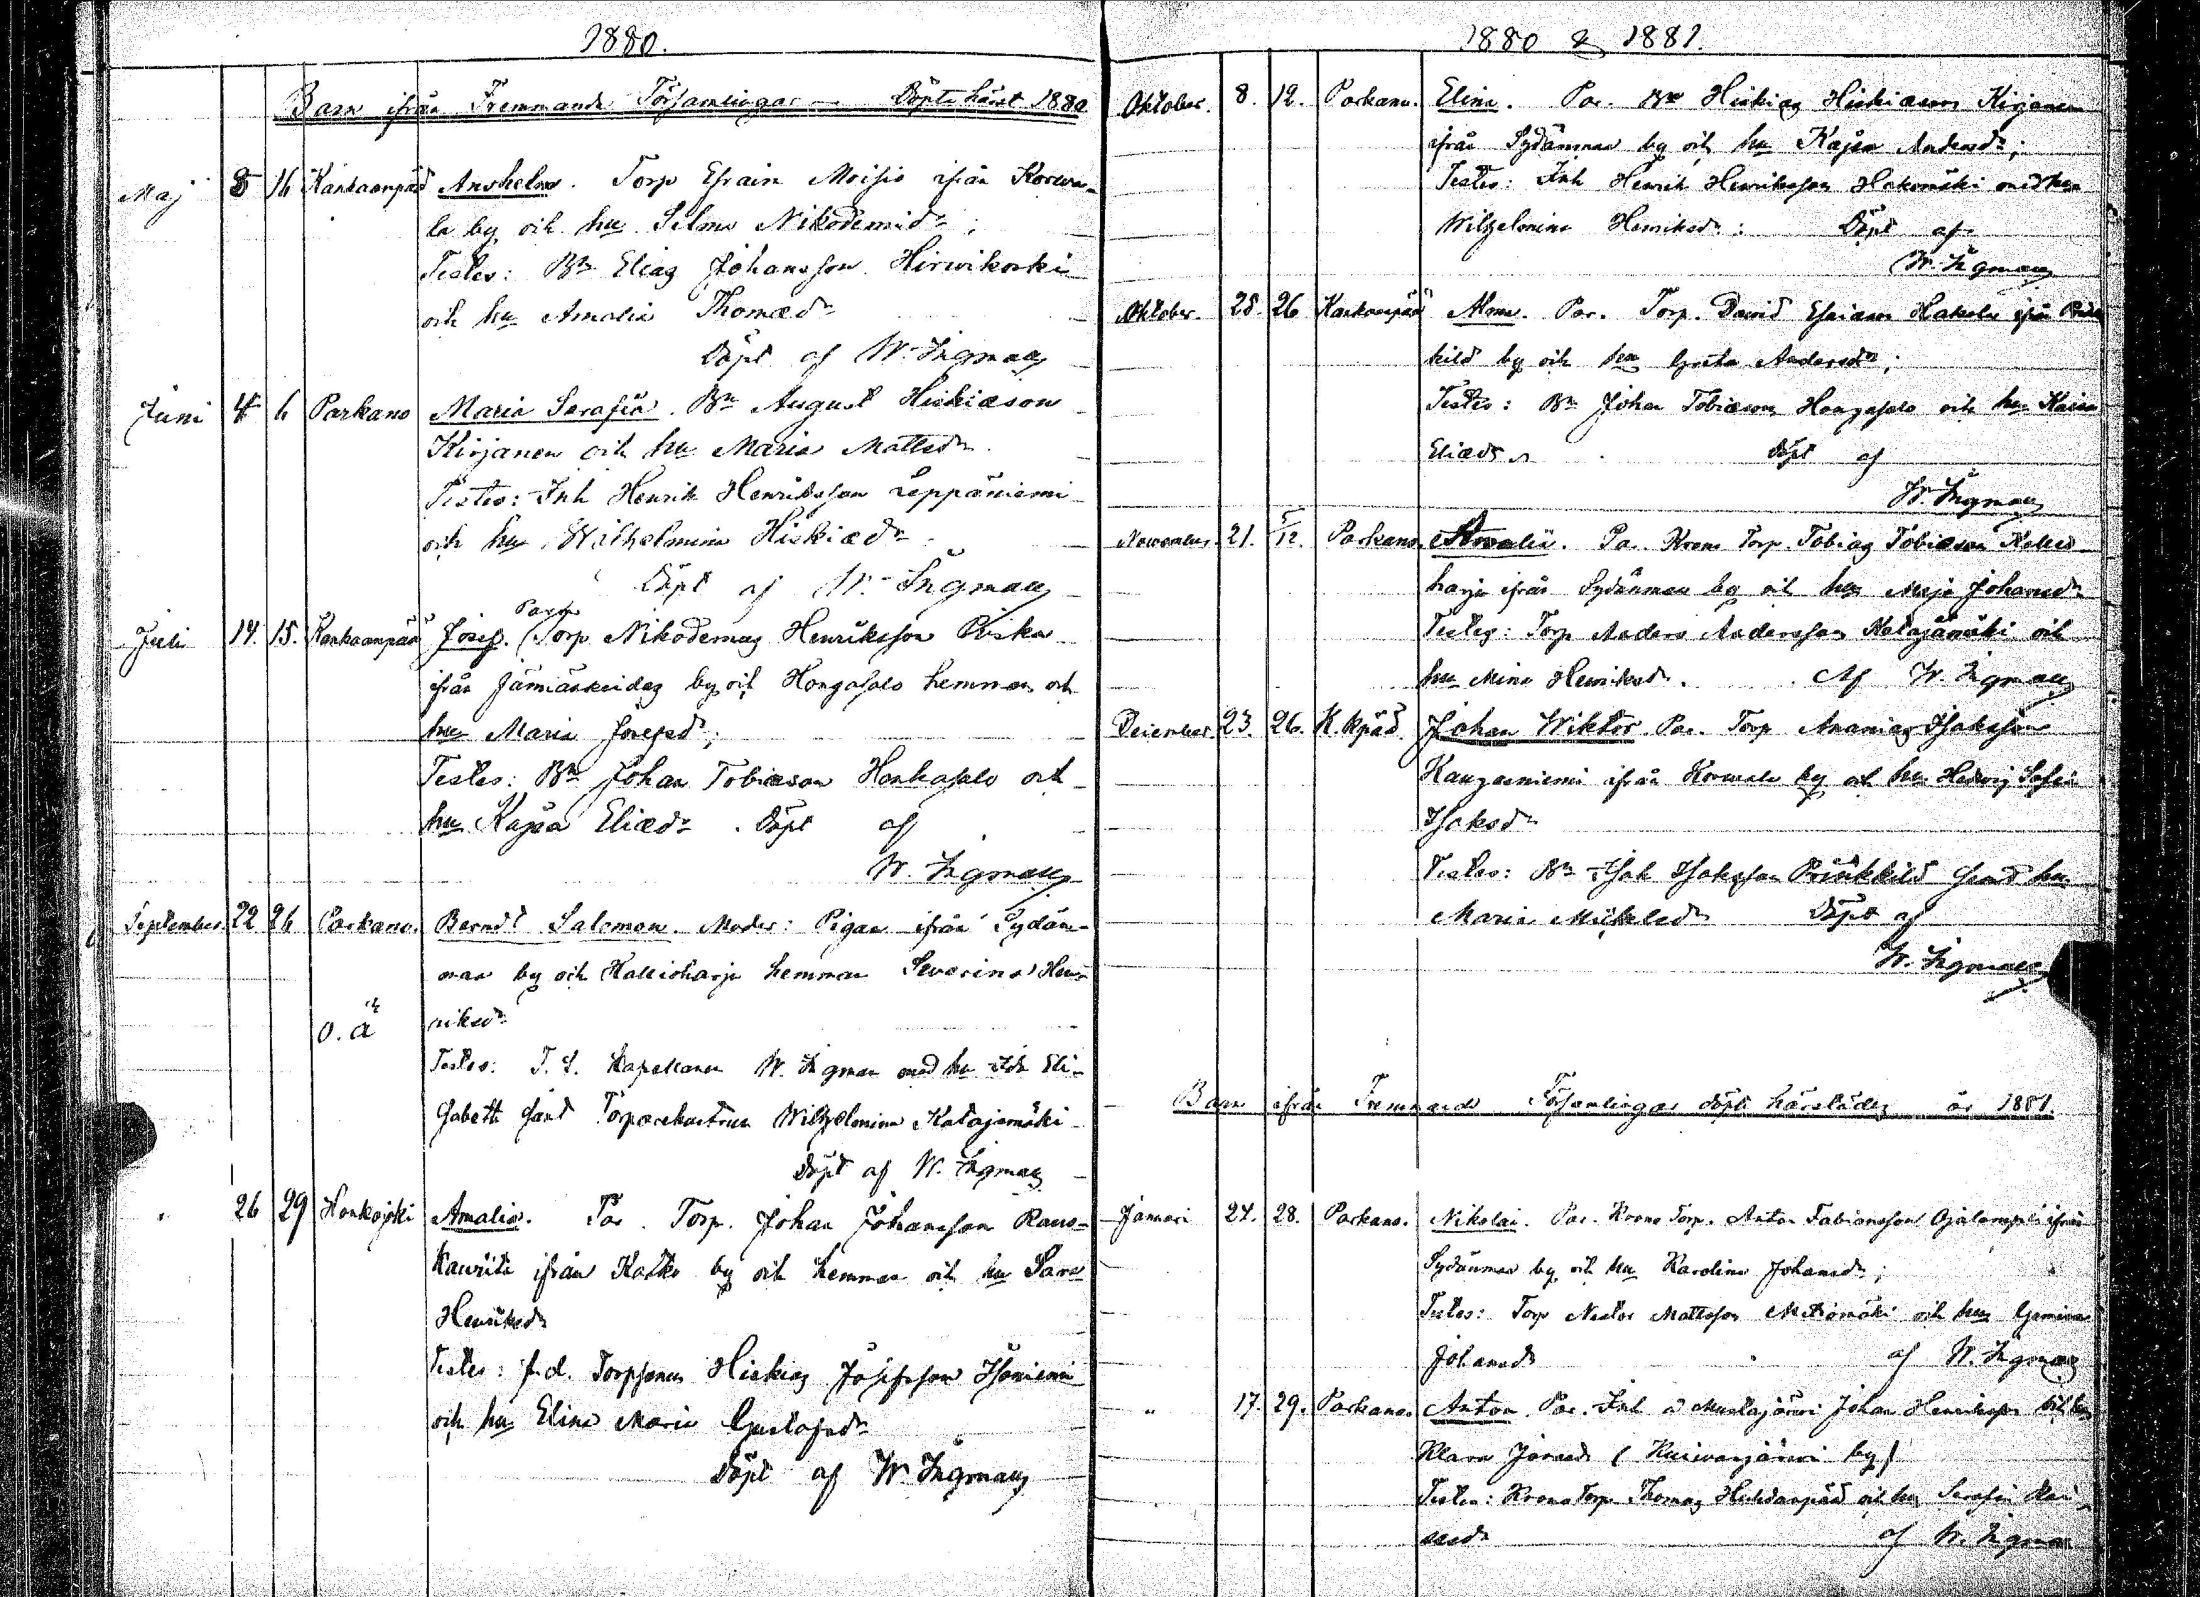 1880.
Barn ifrån Fremmande Församlingar — Döpta härst 1880
Maj 8 16 Kankaanpää Anshelm. Torp Efraim Moisio ifrån Korwa-
la by och hu Selma Nikodemidr;
Testes: Bn Elias Johansson Hirwikoski
och hu Amalia Thomædr
Döpt af W. Ingman
Juni 4 6 Parkano Maria Serafia. Bn August Hiskiæson
Kirjanen och hu Maria Mattsdr.
Testes: Inh Henrik Henriksson Leppäniemi
och hu Wilhelmina Hiskiædr.
Döpt af W. Ingman
Juli 14. 15. Kankaanpää Josef. Torp Nikodemus Henriksson Piiska
ifrån Jämiäskeidas by och Hongasalo hemman och
hu Maria Josefsd;
Testes: Bn Johan Tobiæson Honkasalo och
hu Kajsa Eliædr. Döpt af
W. Ingman
September. 22 26 Parkano. Berndt Salomon. Moder: Pigan ifrån Sydän-
maa by och Kallioharju hemman Severina Hen-
o. ä riksdr
Testes: T. f. Kapellanen W. Ingman med hu Ida Eli-
sabeth samt Torparehustrun Wilhelmina Katajamäki
Döpt af W. Ingman
" 26 29 Honkajoki Amalia. Par. Torp. Johan Johansson Raus-
kauriita ifrån Katko by och hemman och hu Sara
Henriksdr
Testes: f.d. Torpparen Hiskias Josefsson Isoniemi
och hu Elina Maria Gustafsdr
Döpt af W. Ingman
1880 & 1881.
Oktober. 8. 12. Parkano. Elina. Par. Bn Hiskias Hiskiæson Kirjanen
ifrån Sydänmaa by och hu Kajsa Andersdr;
Testes: Inh Henrik Henriksson Hakomäki med hu
Wilhelmina Henriksdr: Döpt af
W. Ingman
Oktober. 25. 26 Kankaanpää Alma. Par. Torp. David Hakola ifrån
kilä by och hu Greta Andersdr;
Testes: Bn Johan Tobiæson Hongasalo och hu Kaisa
Eliædr. Döpt af
W. Ingman
November. 21. 5/12. Parkano. Amalia. Par. Krono Torp. Tobias Tobiæson Kallio
harju ifrån Sydänmaa by och hu Maja Johansdr
Testes: Torp Anders Andersson Katajamäki och
hu Mina Henriksdr. Af W. Ingman
December. 23. 26. K.kpää. Johan Wiktor. Par. Torp Ananias Isaksson
Kangasniemi ifrån Korwala by och hu Hedvig Sofia
Isaksdr
Testes: Bn Isak Isaksson Prinkkilä samt hu
Maria Mickelsdr Döpt af
W. Ingman
Barn ifrån Fremmande Församlingar döpta härstädes år 1881.
Januari 24. 28. Parkano. Nikolai. Par. Krono Torp. Anton Fabiansson Ojalampi ifrån
Sydänmaa by och hu Karolina Johansdr;
Testes: Torp Nestor Mattsson Metsomäki och hu
Johansdr af W. Ingman
" 17. 29. Parkano. Anton. Par. Inh å Mustajärvi Johan Henriksson och hu
Klara Jonasdr (Kuivasjärvi by)
Testes: Krono Torp Thomas och hu Serafia
af W. Ingman